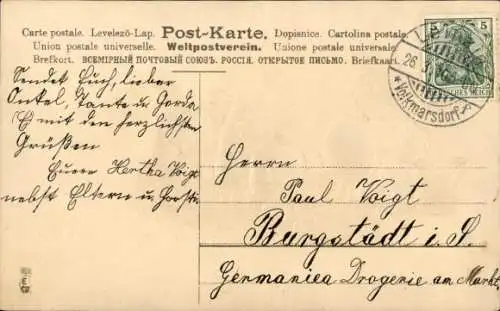 Carte postale. Levelező-Lap. Post-Karte. Dopisnice. Cartolina postale.
Union postale universelle. Weltpostverein. Unione postale universale.
Brefkort. ВСЕМІРНЫЙ ПОЧТОВЫЙ СОЮЗЪ. РОССІЯ. ОТКРЫТОЕ ПИСЬМО. Briefkaart.
5 5
26
Volkmarsdorf
Sendet Euch, lieber
Onkel, Tante u Gerda
mit den herzlichsten
Grüßen
Euere Hertha Voigt
nebst Eltern u
Herrn
Paul Voigt
Burgstädt i. S.
Germanica Drogerie am Markt